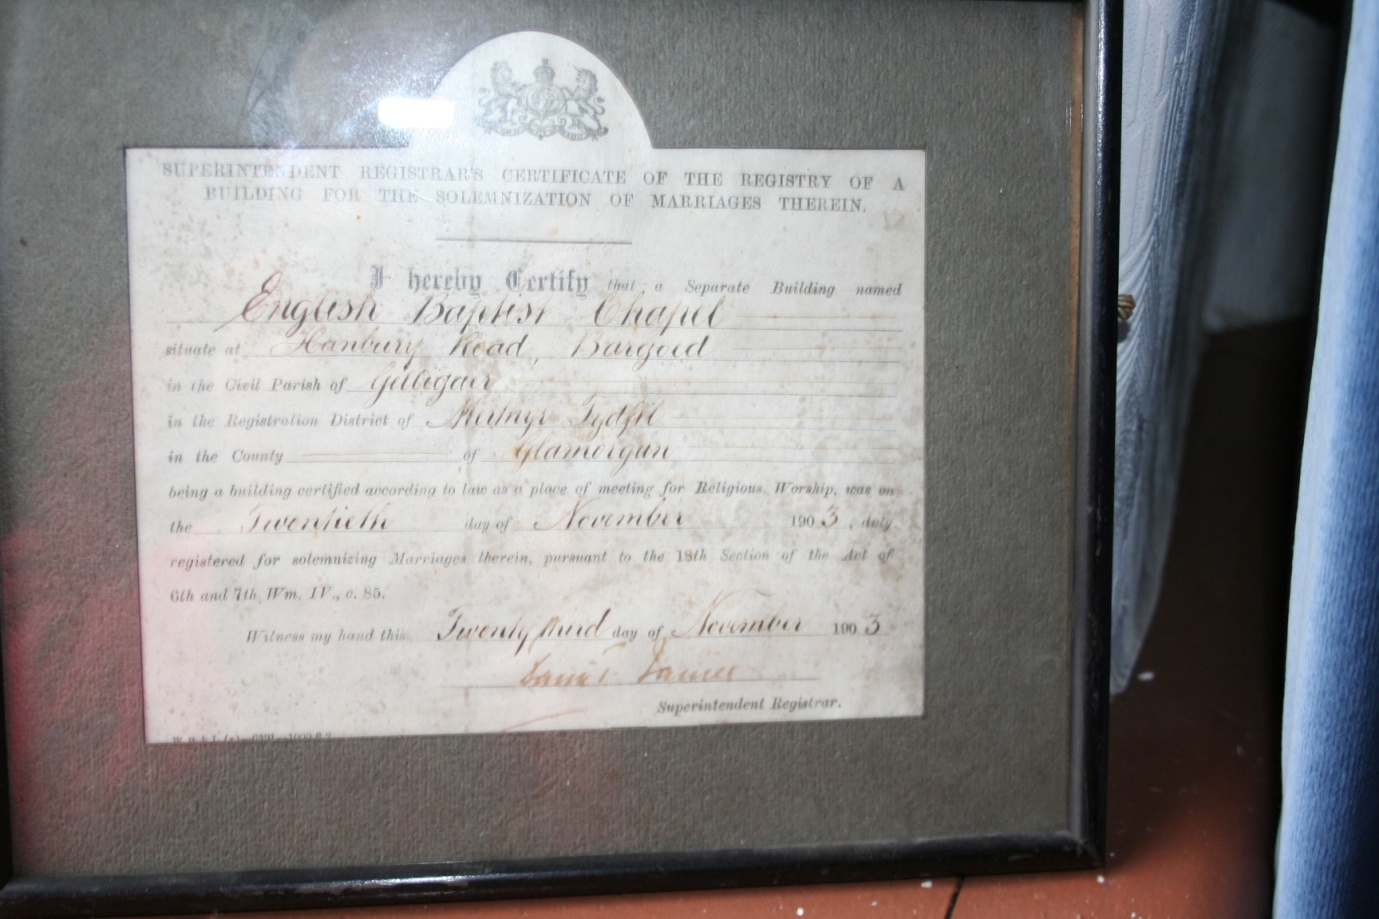 SUPERINTENDENT REGISTRAR'S CERTIFICATE OF THE REGISTRY OF A
BUILDING FOR THE SOLEMNIZATION OF MARRIAGES THEREIN.
I hereby Certify that a Separate Building named
English Baptist Chapel
situate at Hanbury Road, Bargoed
in the Civil Parish of Gelligaer
in the Registration District of Merthyr Tydfil
in the County of Glamorgan
being a building certified according to law as a place of meeting for Religious Worship, was on
the Twentieth day of November 1903, duly
registered for solemnizing Marriages therein, pursuant to the 18th Section of the Act of
6th and 7th Wm. IV., c. 85.
Witness my hand this Twenty third day of November 1903
Superintendent Registrar.